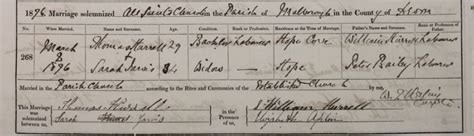 1896 Marriage solemnized All Saints Church in the Parish of Malborough in the County of Devon
When Married. Name and Surname. Age. Condition. Rank or Profession. Residence at the time of Marriage. Father's Name and Surname. Rank or Profession of Father.
268 March 1896
Thomas Hurrell 29 Bachelor Labourer Hope Cove William Hurrell Labourer
Sarah Jarvis 34 Widow Hope Peter Bailey Labourer
Married in the Parish Church according to the Rites and Ceremonies of the Established Church by me,
This Marriage was solemnized between us,
Thomas Hurrell
Sarah Jarvis
in the Presence of us,
William Hurrell
Elizabeth